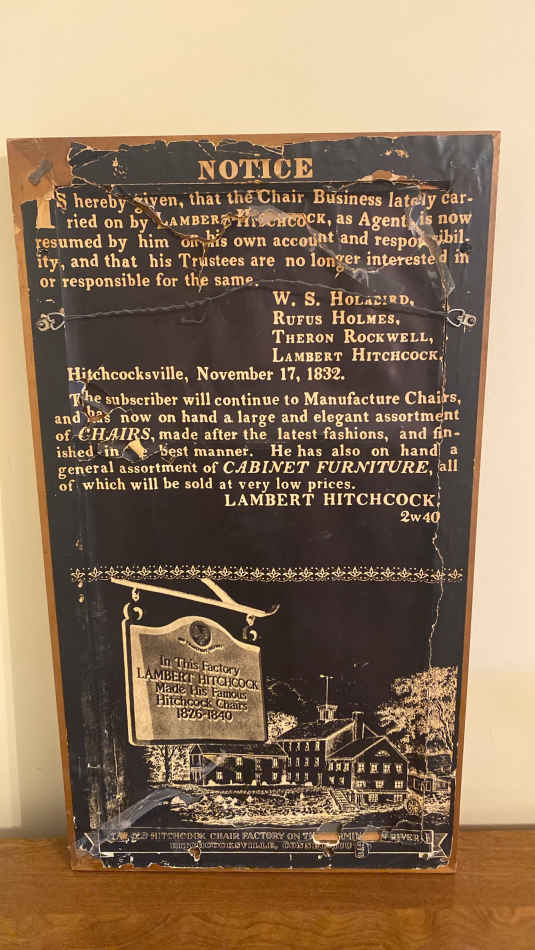 NOTICE
IS hereby given, that the Chair Business lately car-
ried on by LAMBERT HITCHCOCK, as Agent, is now
resumed by him on his own account and responsibil-
ity, and that his Trustees are no longer interested in
or responsible for the same.
W. S. HOLABIRD,
RUFUS HOLMES,
THERON ROCKWELL,
LAMBERT HITCHCOCK,
Hitchcocksville, November 17, 1832.
The subscriber will continue to Manufacture Chairs,
and has now on hand a large and elegant assortment
of CHAIRS, made after the latest fashions, and fin-
ished in best manner. He has also on hand a
general assortment of CABINET FURNITURE, all
of which will be sold at very low prices.
LAMBERT HITCHCOCK.
2w40
In This Factory
LAMBERT HITCHCOCK
Made His Famous
Hitchcock Chairs
1826-1840
OLD HITCHCOCK CHAIR FACTORY ON THE RIVER
HITCHCOCKSVILLE,